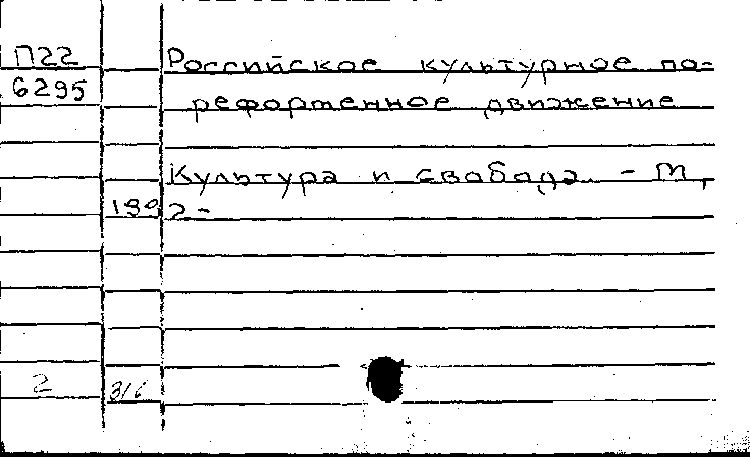 П22
6295
Российское культурное по-
реформенное движение
Культура и свобода. - М,
1992 -
2 316